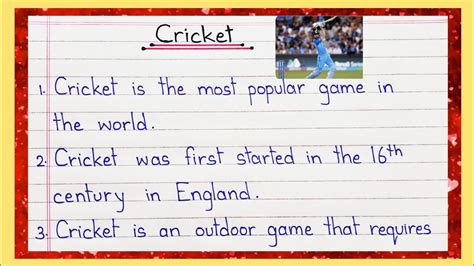 Cricket
1. Cricket is the most popular game in
the world.
2. Cricket was first started in the 16th
century in England.
3. Cricket is an outdoor game that requires